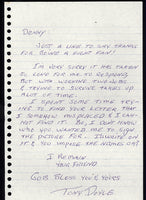 DENNY:
JUST A LINE TO SAY THANKS
FOR BEING A GREAT FAN!
I'M VERY SORY IT HAS TAKEN
SO LONG FOR ME TO RESPOND,
BUT WITH WORKING TWO JOBS
& TRYING TO SURVIVE TAKES UP
ALOT OF TIME.
I SPENT SOME TIME TRY-
ING TO FIND YOUR LETTER THAT
I SOMEHOW MISPLACED & I CAN-
NOT FIND IT. SO, I DONT KNOW
WHO YOU WANTED ME TO SIGN
THE PICTURE FOR. I'LL WRITE ON
IT & YOU THE NAMES OK!
I REMAIN
YOUR FRIEND
GOD BLESS YOU & YOURS
TONY DOYLE